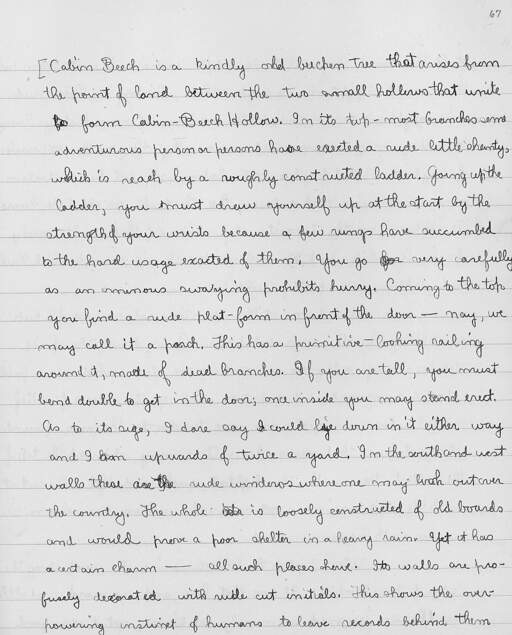 67
[Cabin Beech is a kindly old beechen tree that arises from
the point of land between the two small hollows that unite
to form Cabin-Beech Hollow. In its top-most branches some
adventurous person or persons have erected a rude little shanty,
which is reach by a roughly constructed ladder. Going up the
ladder, you must draw yourself up at the start by the
strength of your wrists because a few rungs have succumbed
to the hard usage exacted of them. You go very carefully
as an ominous swaying prohibits hurry. Coming to the top
you find a rude plat-form in front of the door — nay, we
may call it a porch. This has a primitive-looking railing
around it, made of dead branches. If you are tall, you must
bend double to get in the door; once inside you may stand erect.
As to its size, I dare say I could lie down in it either way
and I am upwards of twice a yard. In the south and west
walls there are rude windows where one may look out over
the country. The whole is loosely constructed of old boards
and would prove a poor shelter in a heavy rain. Yet it has
a certain charm — all such places have. Its walls are pro-
fusely decorated with rude cut initials. This shows the over-
powering instinct of humans to leave records behind them